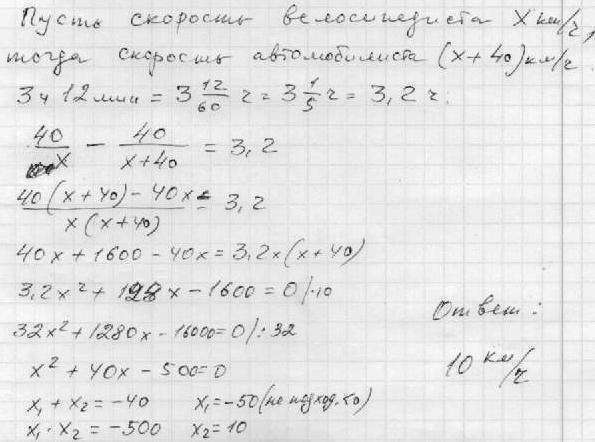 Пусть скорость велосипедиста x км/ч,
тогда скорость автомобилиста (x+40) км/ч.
3 ч 12 мин = 3 12/60 ч = 3 1/5 ч = 3,2 ч.
40/x - 40/(x+40) = 3,2
(40(x+40) - 40x)/(x(x+40)) = 3,2
40x + 1600 - 40x = 3,2x(x+40)
3,2x² + 128x - 1600 = 0 |·10
32x² + 1280x - 16000 = 0 |:32
x² + 40x - 500 = 0
x₁ + x₂ = -40 x₁ = -50 (не подход.)
x₁ · x₂ = -500 x₂ = 10
Ответ:
10 км/ч